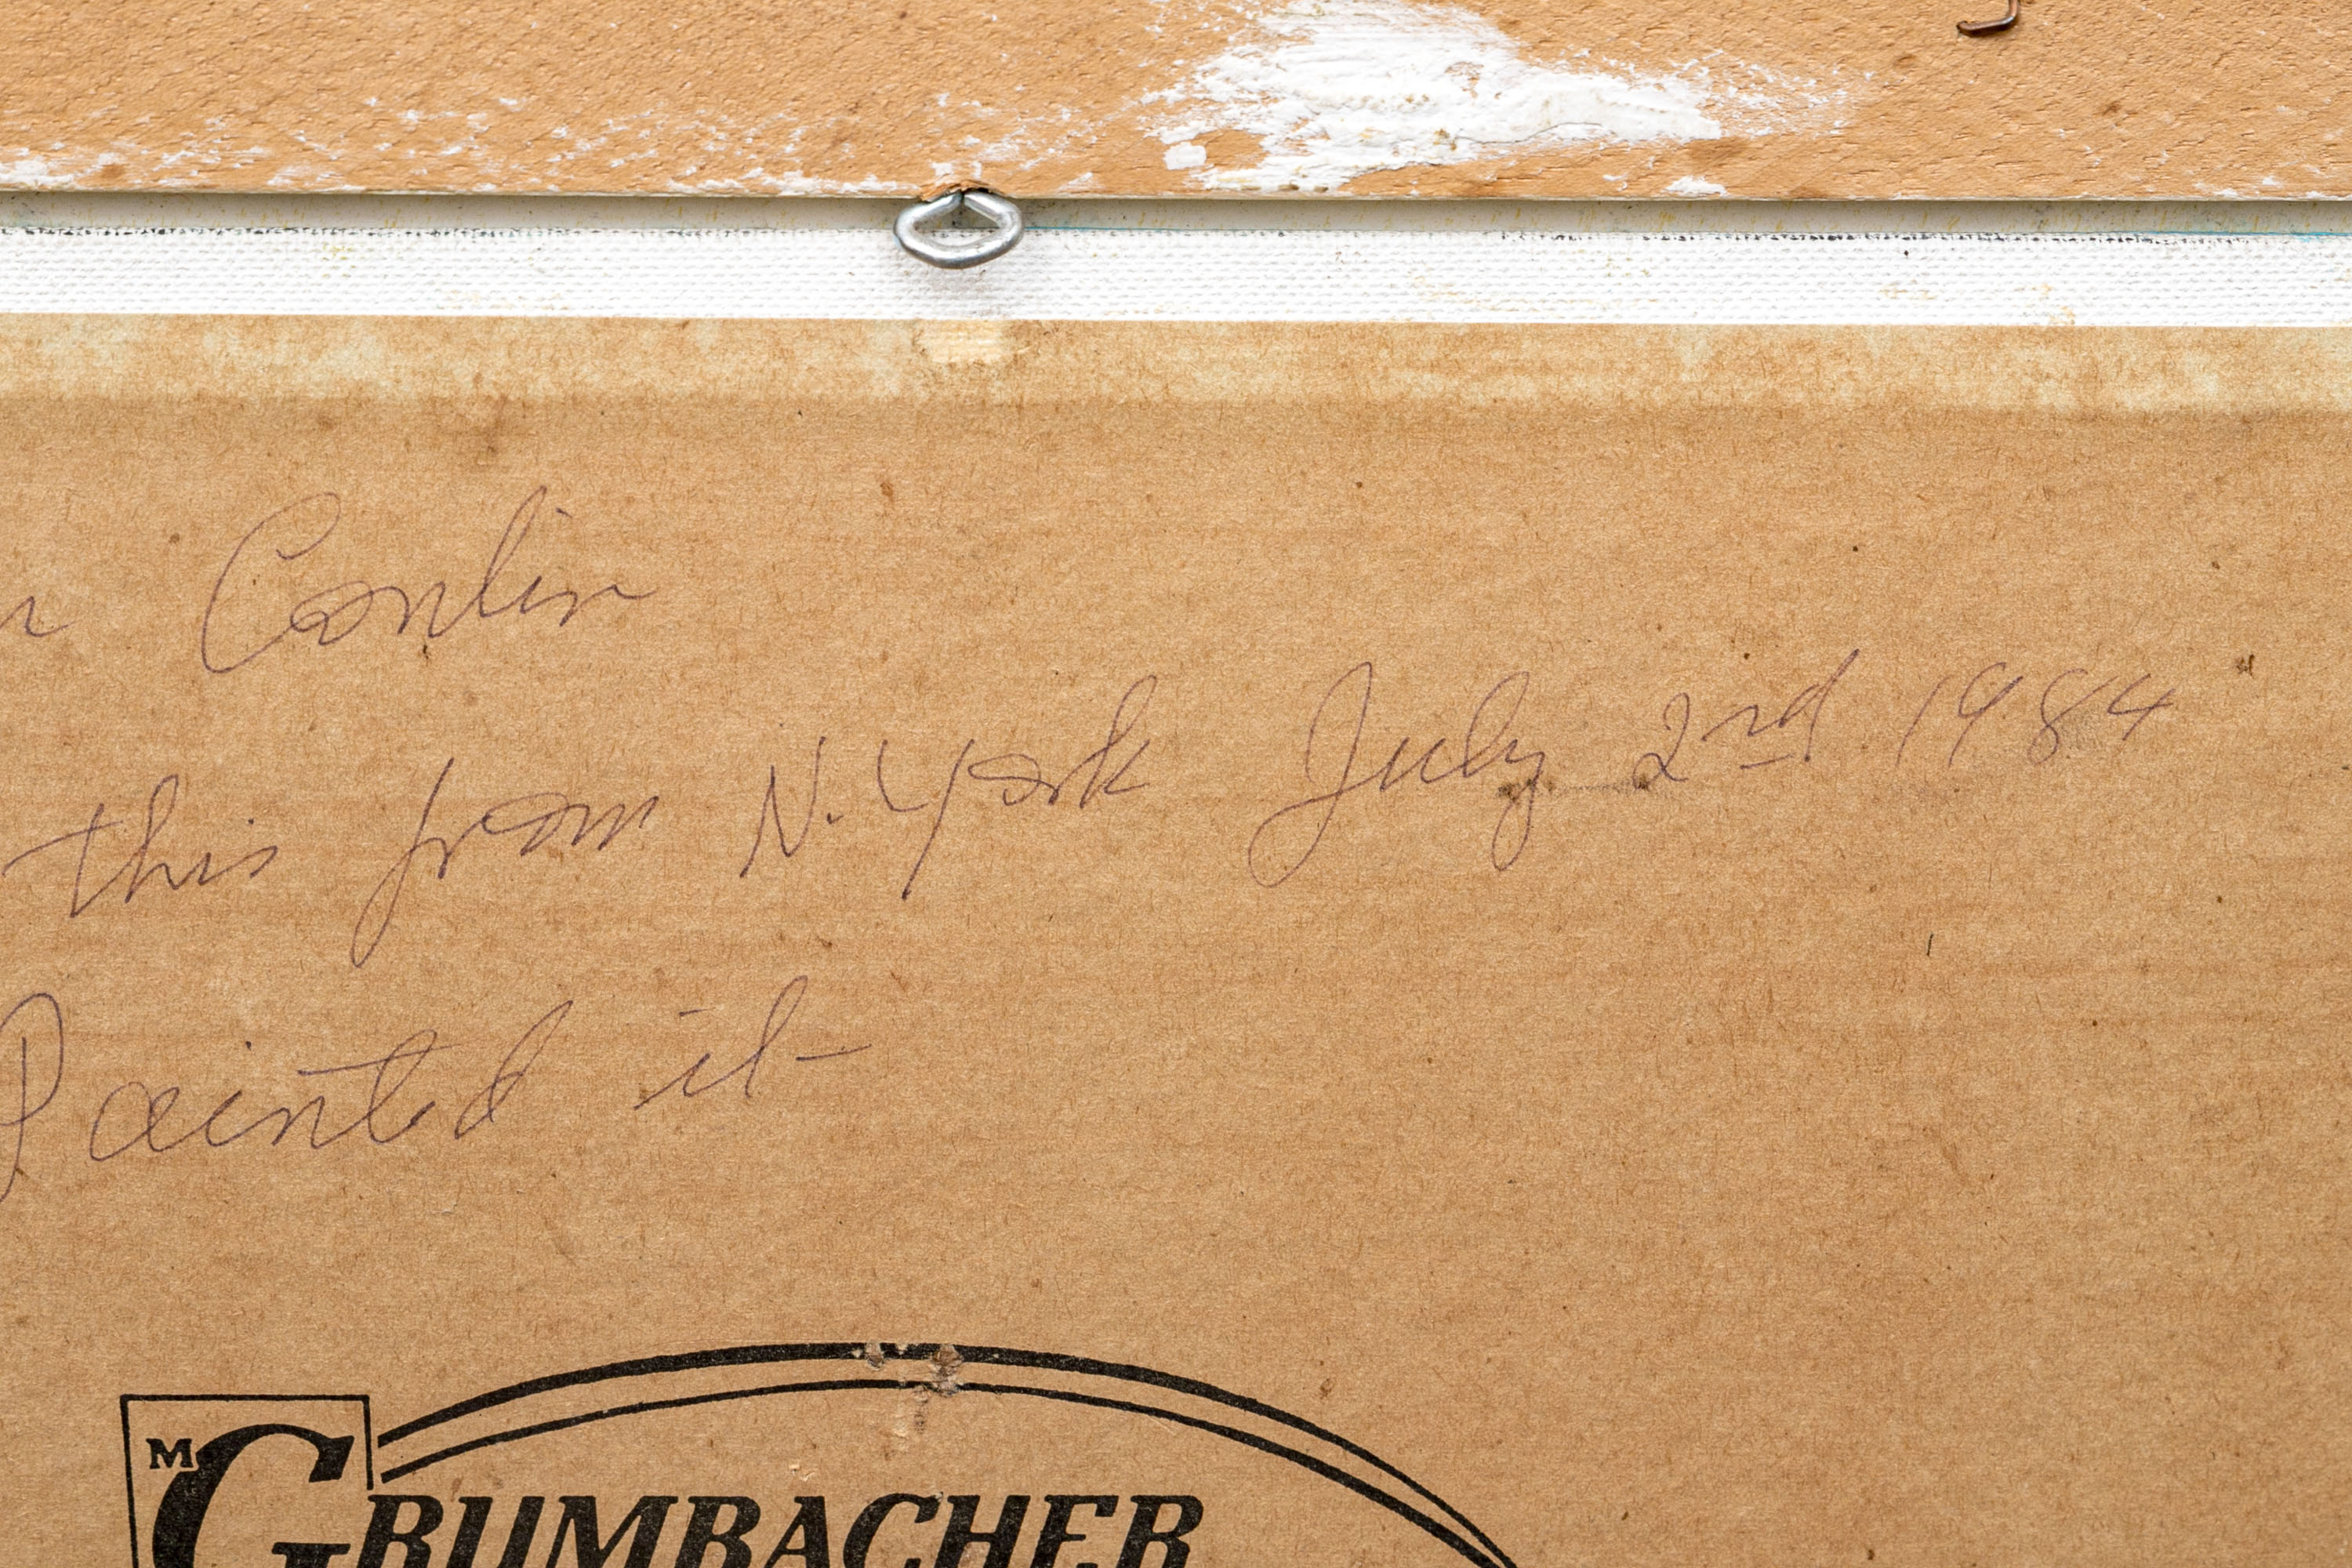 Conlin
this from N. York July 2rd 1984
Painted it
M GRUMBACHER